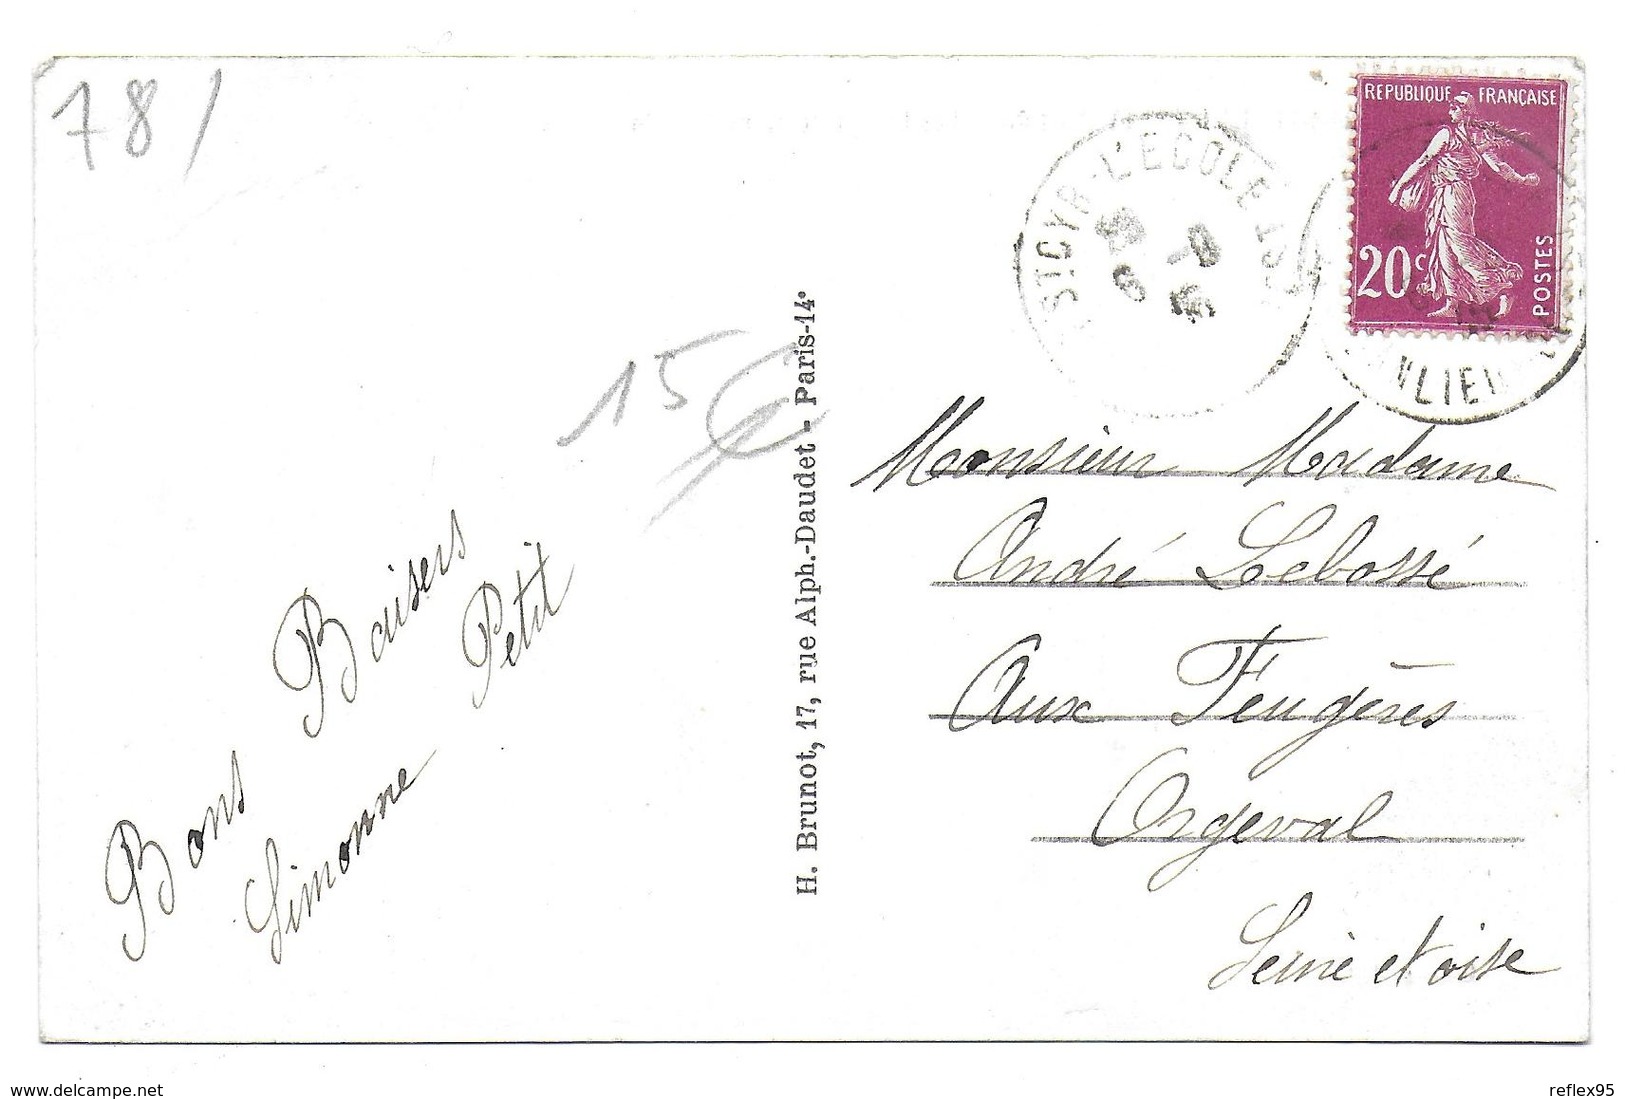 78/
REPUBLIQUE FRANÇAISE
20c
POSTES
ST CYR-L'ECOLE
15€
Bons Baisers
Simonne Petit
H. Brunot, 17, rue Alph.-Daudet - Paris-14e
Monsieur Madame
André Lebossé
Aux Feugères
Orgeval
Seine et oise
www.delcampe.net
reflex95